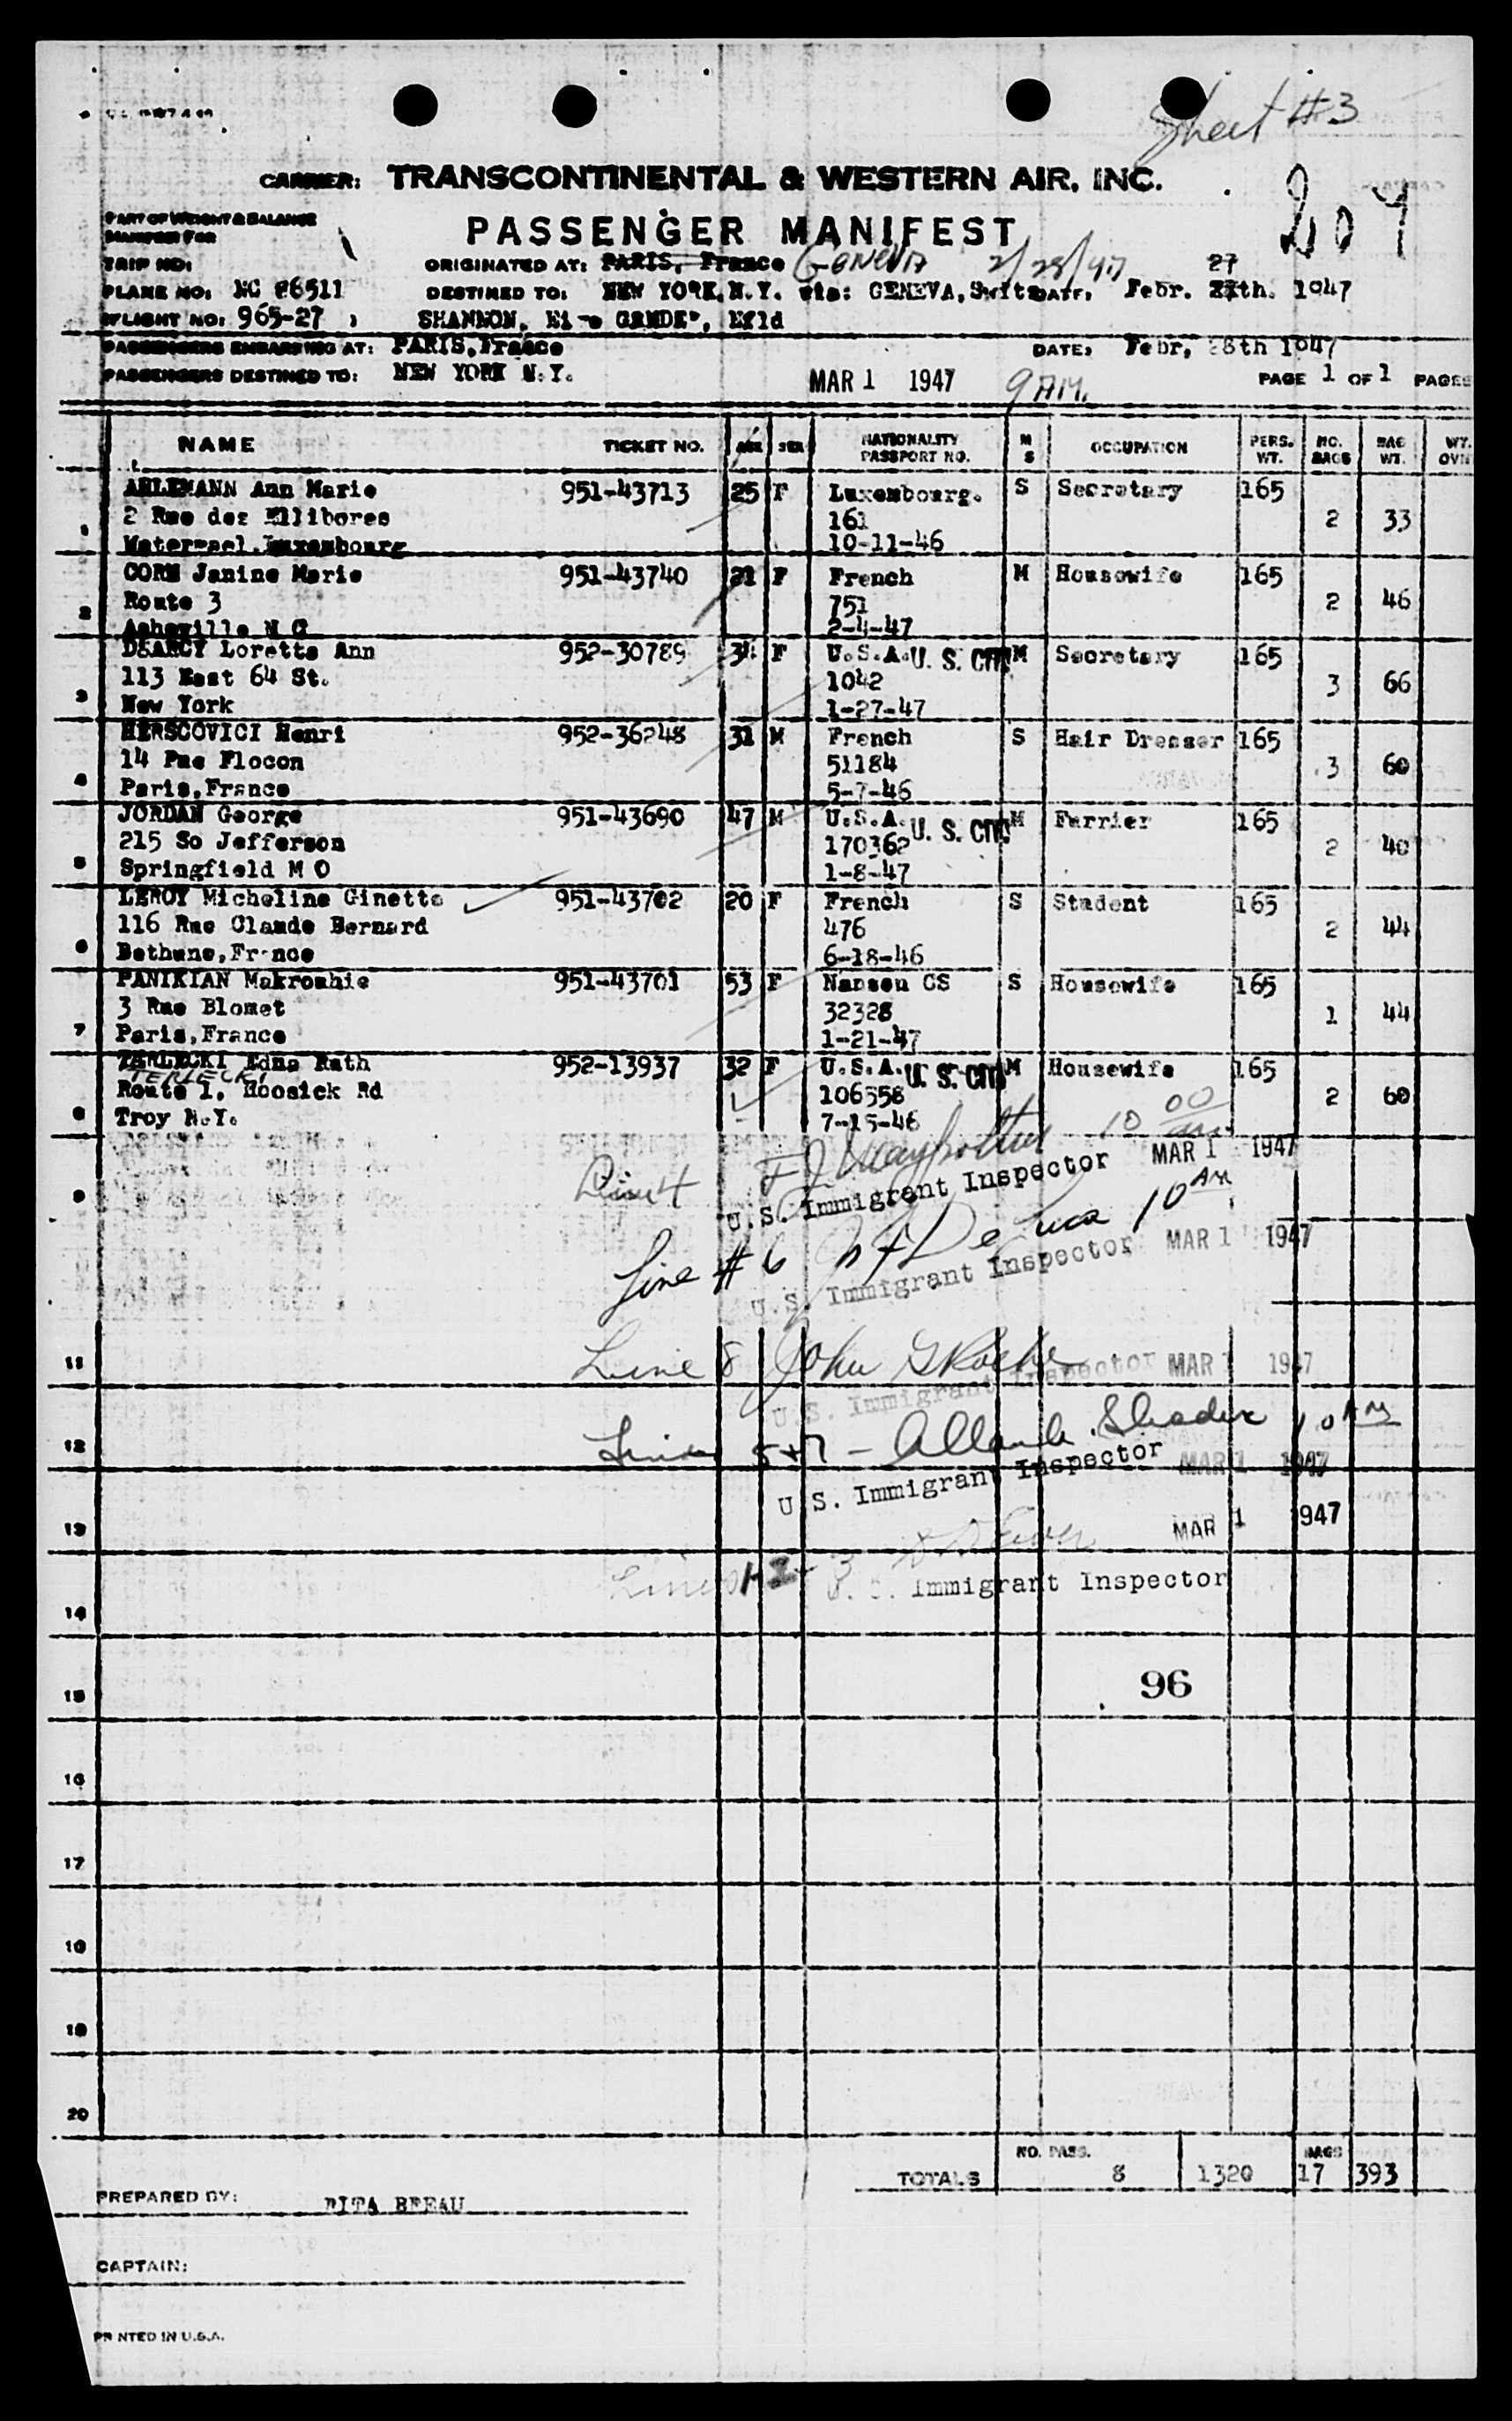 Sheet #3
CARRIER: TRANSCONTINENTAL & WESTERN AIR, INC.
209
PART OF WEIGHT & BALANCE
MANIFEST FOR
PASSENGER MANIFEST
TRIP NO:
ORIGINATED AT: PARIS, France Geneva 2/28/47 27
PLANE NO: NC 86511
DESTINED TO: NEW YORK, N.Y. via: GENEVA, Switz DATE, Febr. 27th. 1947
FLIGHT NO: 965-27
SHANNON, GANDER, Nfld
PASSENGERS EMBARKING AT: PARIS, France
DATE, Febr, 28th 1947
PASSENGERS DESTINED TO: NEW YORK N.Y.
MAR 1 1947 9 AM.
PAGE 1 OF 1 PAGES
NAME TICKET NO. AGE SEX NATIONALITY PASSPORT NO. M S OCCUPATION PERS. WT. NO. BAGS BAG WT. WT.
1 ARLEMANN Ann Marie 951-43713 25 F Luxembourg. S Secretary 165
2 Rue des Ellibores 161 2 33
Luxembourg 10-11-46
2 CORN Janine Marie 951-43740 21 F French M Housewife 165
Route 3 751 2 46
Asheville N C 2-4-47
3 DEARCY Loretta Ann 952-30789 34 F U.S.A. U. S. CIT. M Secretary 165
113 East 64 St. 1042 3 66
New York 1-27-47
4 HERSCOVICI Henri 952-36248 31 M French S Hair Dresser 165
14 Rue Flocon 51184 3 60
Paris, France 5-7-46
5 JORDAN George 951-43690 47 M U.S.A. U. S. CIT. M Farrier 165
215 So Jefferson 170362 2 40
Springfield M O 1-8-47
6 LEROY Micheline Ginette 951-43702 20 F French S Student 165
116 Rue Claude Bernard 476 2 44
Bethune, France 6-18-46
7 PANIKIAN Makroahie 951-43701 53 F Nansen CS S Housewife 165
3 Rue Blomet 32328 1 44
Paris, France 1-21-47
8 Edna Ruth 952-13937 32 F U.S.A. U. S. CIT. M Housewife 165
TERLECKI
Route 1, Hoosick Rd 106558 2 60
Troy N.Y. 7-15-46
10 00 am
Line 4
U.S. Immigrant Inspector MAR 1 1947
9
Line # 6 De Luca 10 AM
U.S. Immigrant Inspector MAR 1 1947
11 Line 8 John G Roche
U.S. Immigrant Inspector MAR 1 1947
12 Lines 5+7 - 10 AM
U.S. Immigrant Inspector MAR 1 1947
13 MAR 1 1947
Lines 1-2-3
U. S. Immigrant Inspector
14
15 96
16
17
18
19
20
NO. PASS. BAGS
TOTALS 8 1320 17 393
PREPARED BY: RITA
CAPTAIN:
PRINTED IN U.S.A.